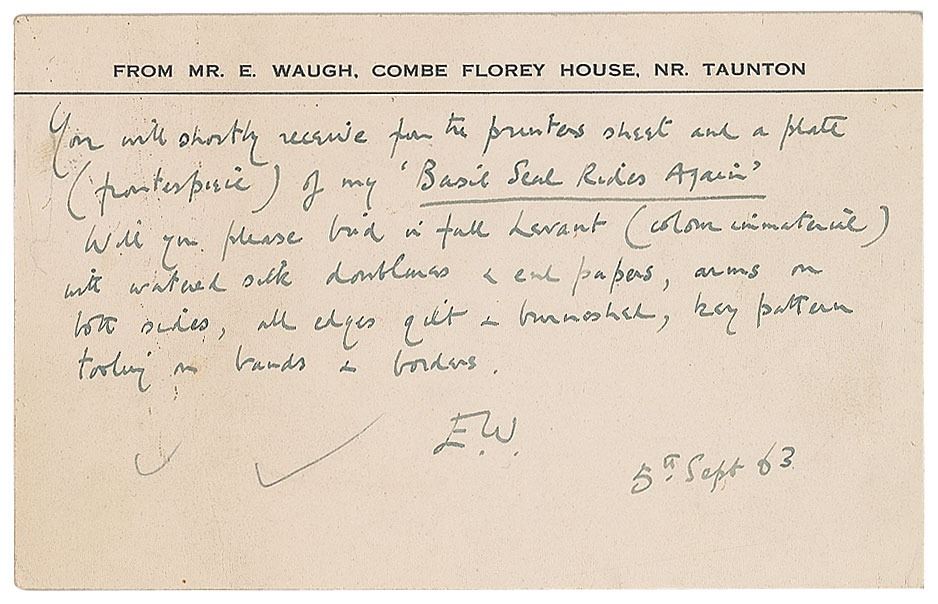 FROM MR. E. WAUGH, COMBE FLOREY HOUSE, NR. TAUNTON
You will shortly receive from the printers sheet and a plate
(fronterspiece) of my 'Basil Seal Rides Again'
Will you please bind in full Levant (colour immaterial)
with watered silk doublures & end papers, arms on
both sides, all edges gilt & burnished, key pattern
tooling on bands & borders.
E.W.
5th Sept 63